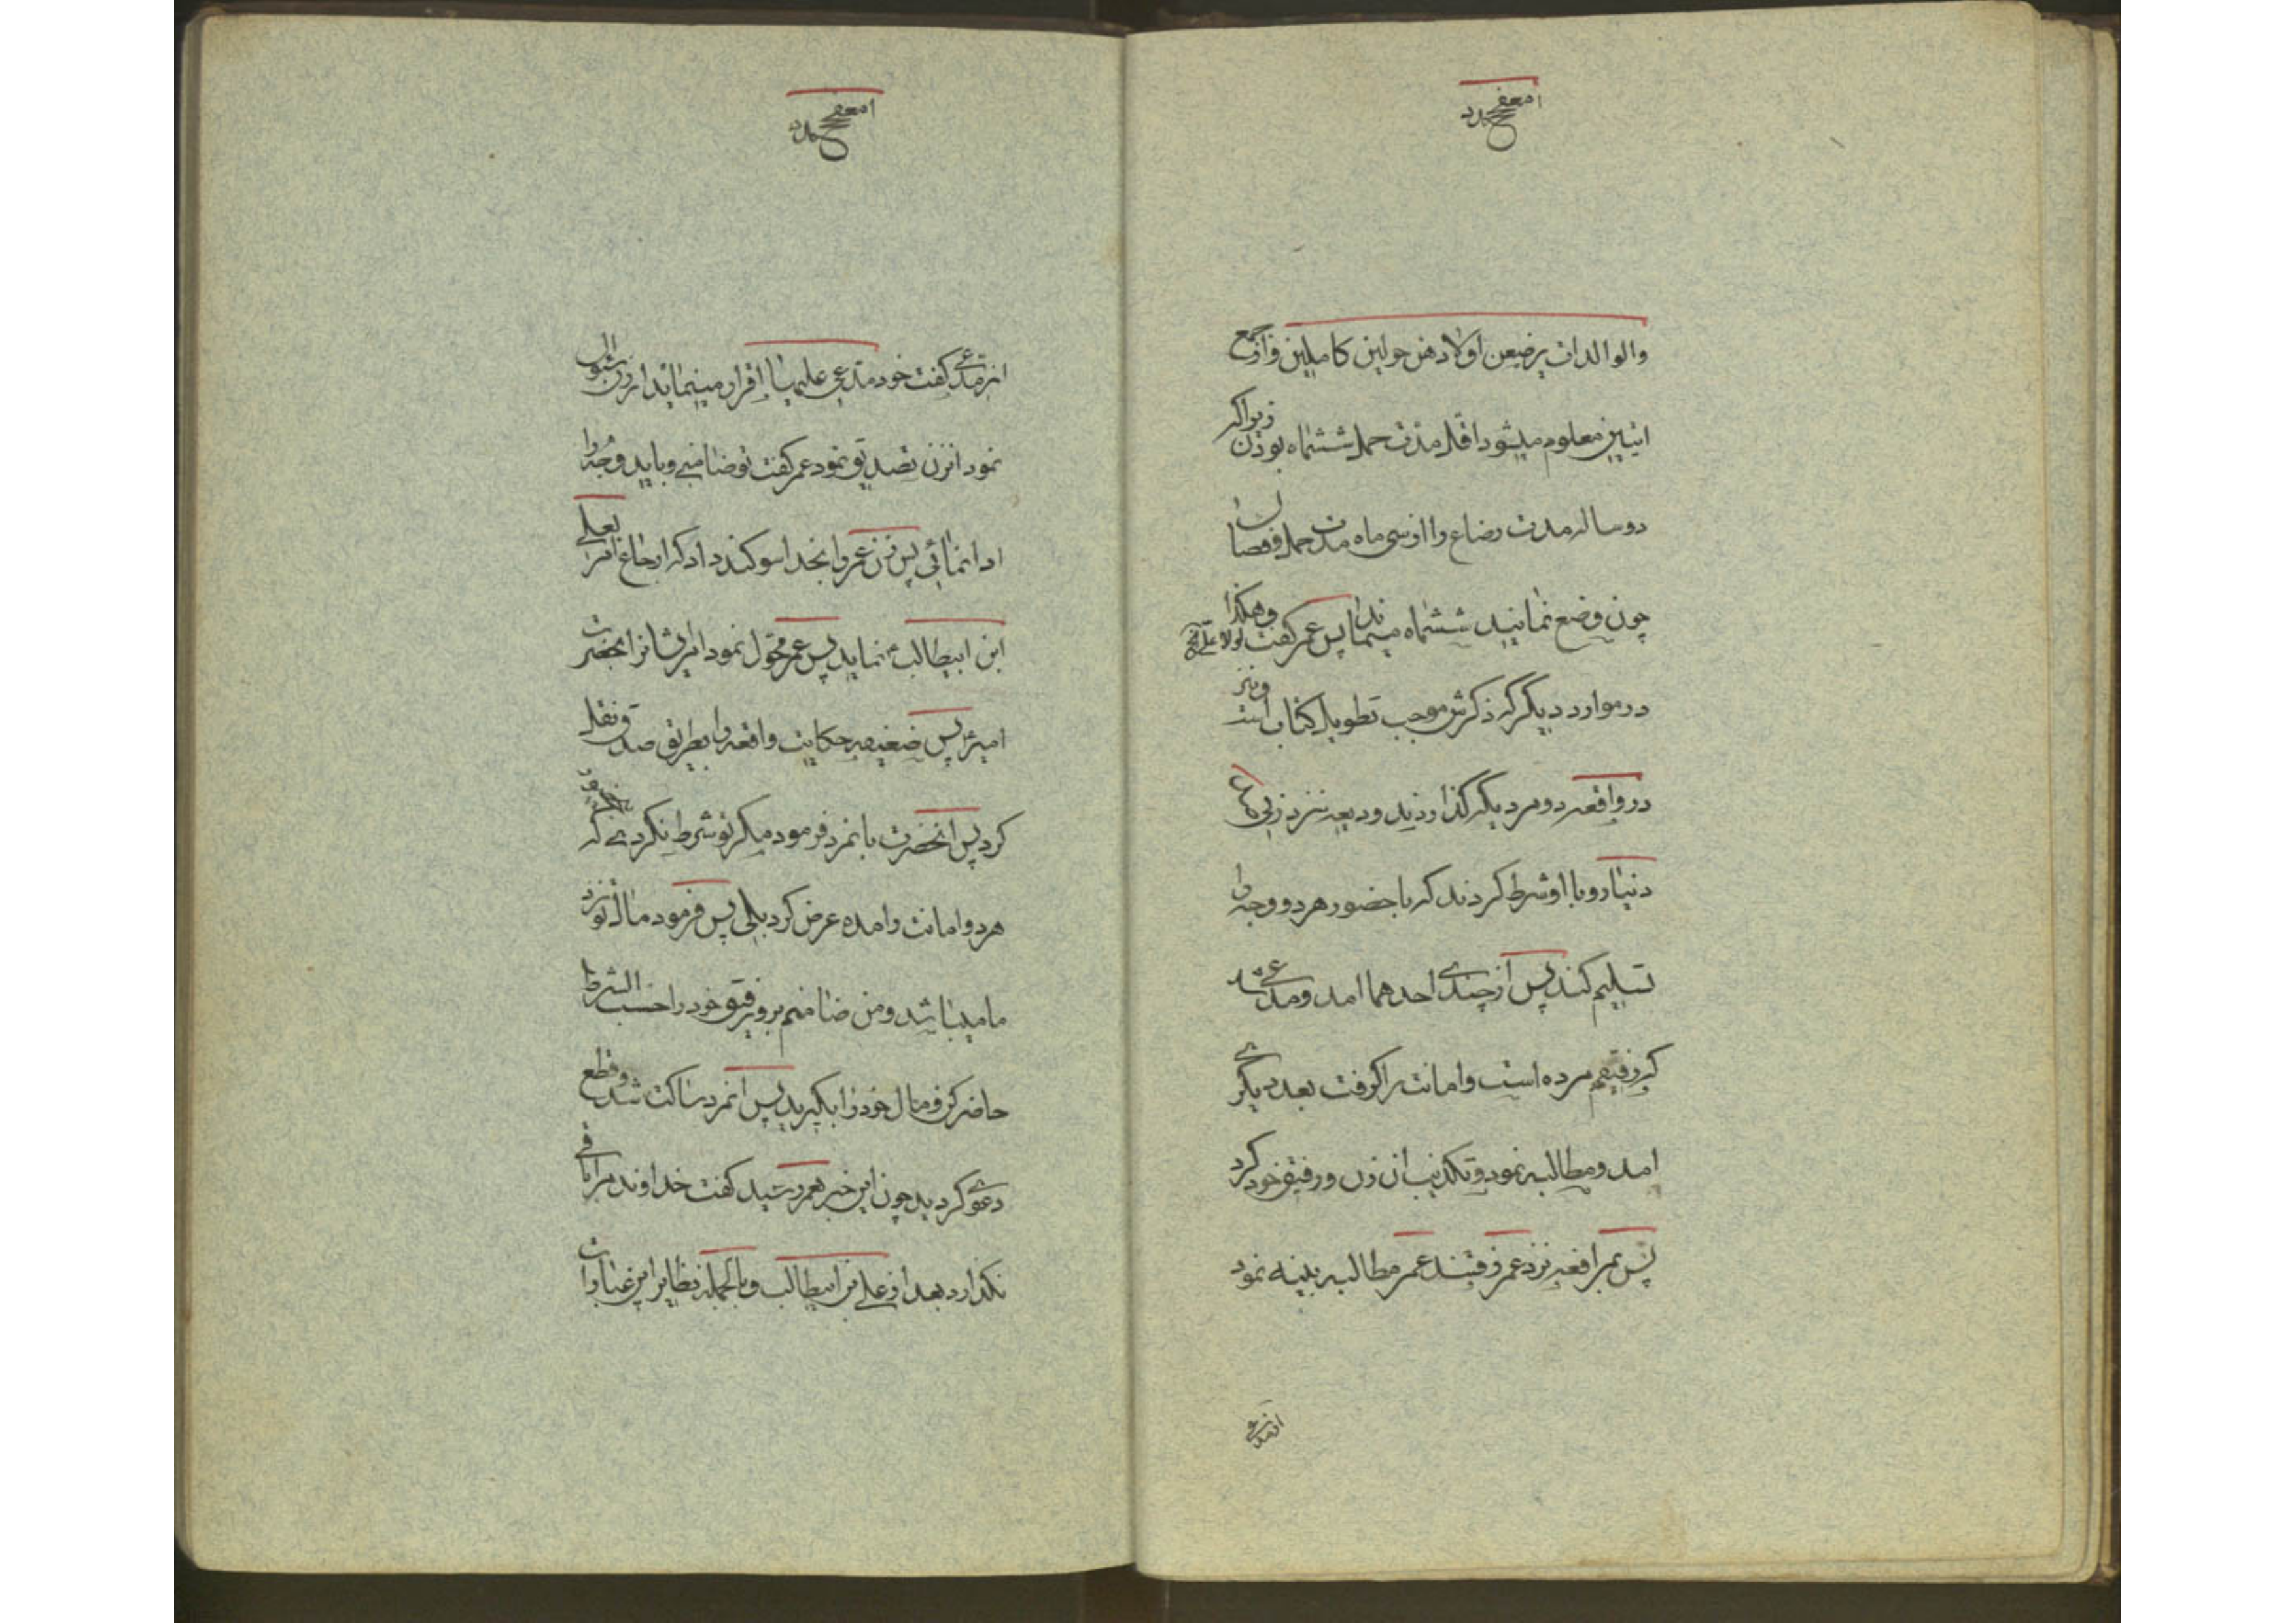 والوالدات یرضعن اولادهن حولین کاملین و از جمع
ایتین معلوم میشود اقل مدت حمل ششماه بودن زیرا که
دو ساله مدت رضاع را از سی ماه مدت حمل و فصال
چون وضع نمائید ششماه میماند پس عمر گفت لولا علی وهکذا
در موارد دیگر که ذکرش موجب تطویل کتاب است و نیز
در واقعه دو مرد یکه گذاردند ودیعه نزد زنی
دینار و با او شرط کردند که با حضور هر دو وجه را
تسلیم کند پس از چندی احدهما امد و مدعی شد
که رفیقم مرده است و امانت را گرفت بعد دیگری
امد و مطالبه نمود و تکذیب ان زن و رفیق خود کرد
پس بمرافعه نزد عمر رفتند عمر مطالبه بینه نمود
از مدعی گفت خود مدعی علیها اقرار مینماید از زن سئوال
نمود انزن تصدیق نمود عمر گفت تو ضامنی و باید وجه را
ادا نمائی پس زن عمر را بخدا سوکند داد که ارجاع امر بعلی
ابن ابیطالب نماید پس عمر محول نمود امر ایشانرا بحضرت
امیر پس ضعیفه حکایت واقعه را بطریق صدق نقل
کرد پس انحضرت بانمرد فرمود مگر تو شرط نکردی که
هر دو امانت را مده عرض کرد بلی پس فرمود مال تو نزد
ما میباشد و من ضامنم برو رفیق خود را حسب الشرط
حاضر کن و مال خود را بگیرید پس انمرد ساکت شد و قطع
دعوی گردید چون این خبر بعمر رسید گفت خداوند مرا باقی
نگذارد بعد از علی بن ابیطالب و بالجمله نظایر این عبارات